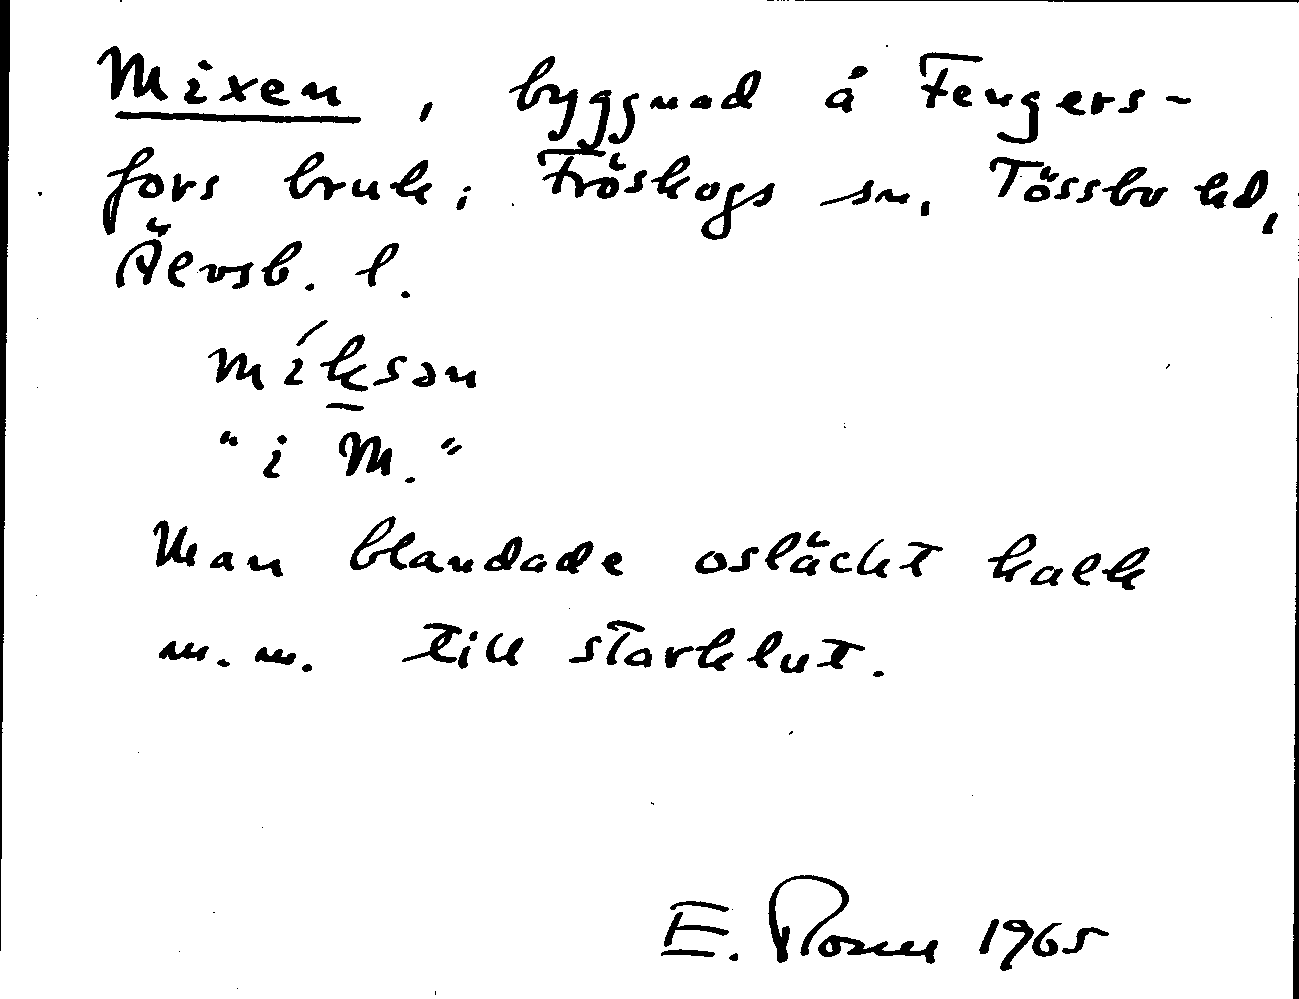 Mixen, byggnad å Fengers-
fors bruk; Fröskogs sn, Tössbo hd,
Älvsb. l.
míksən
"i M."
Man blandade osläckt kalk
m.m. till starklut.
E. Rosen 1965